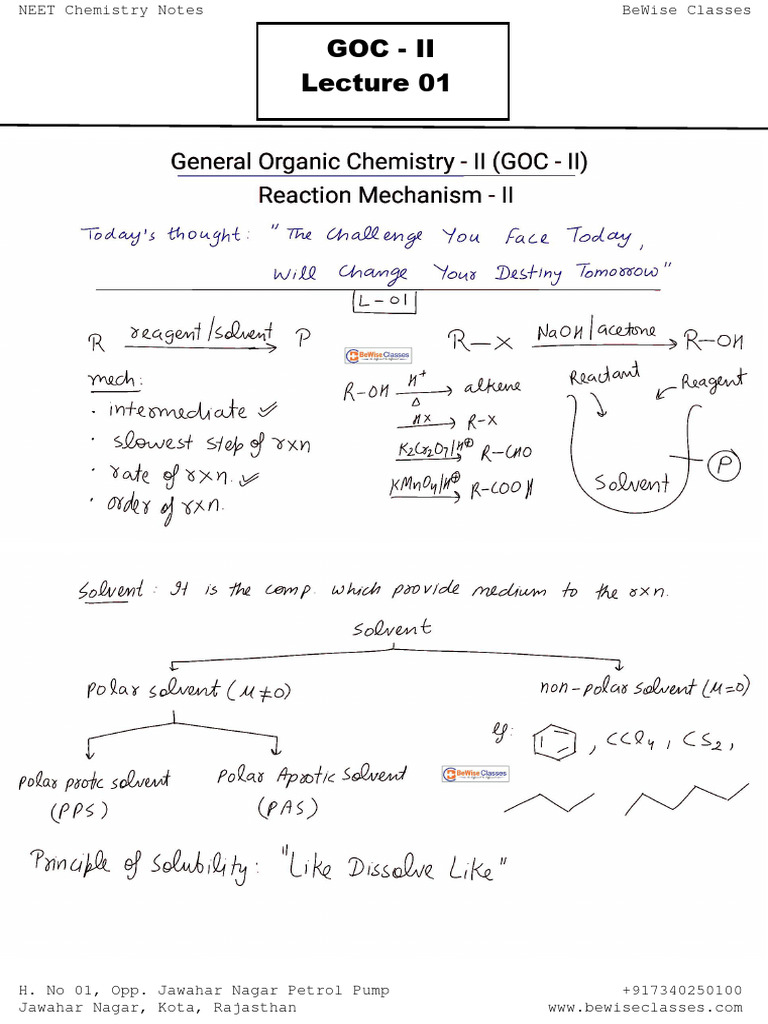 NEET Chemistry Notes BeWise Classes
GOC - II
Lecture 01
General Organic Chemistry - II (GOC - II)
Reaction Mechanism - II
Today's thought: "The Challenge You Face Today,
Will Change Your Destiny Tomorrow"
L-01
R reagent/solvent P
BeWiseClasses
R-X NaOH/acetone R-OH
mech:
· intermediate ✓
· slowest step of rxn
· rate of rxn. ✓
· order of rxn.
R-OH H+ Δ alkene
HX R-X
K2Cr2O7/H⊕ R-CHO
KMnO4/H⊕ R-COOH
Reactant Reagent
Solvent P
Solvent: It is the comp. which provide medium to the rxn.
Solvent
Polar solvent (M≠0) non-polar solvent (M=0)
eg: , CCl4, CS2,
polar protic solvent Polar Aprotic Solvent
(PPS) (PAS)
BeWiseClasses
Principle of Solubility: "Like Dissolve Like"
H. No 01, Opp. Jawahar Nagar Petrol Pump +917340250100
Jawahar Nagar, Kota, Rajasthan www.bewiseclasses.com